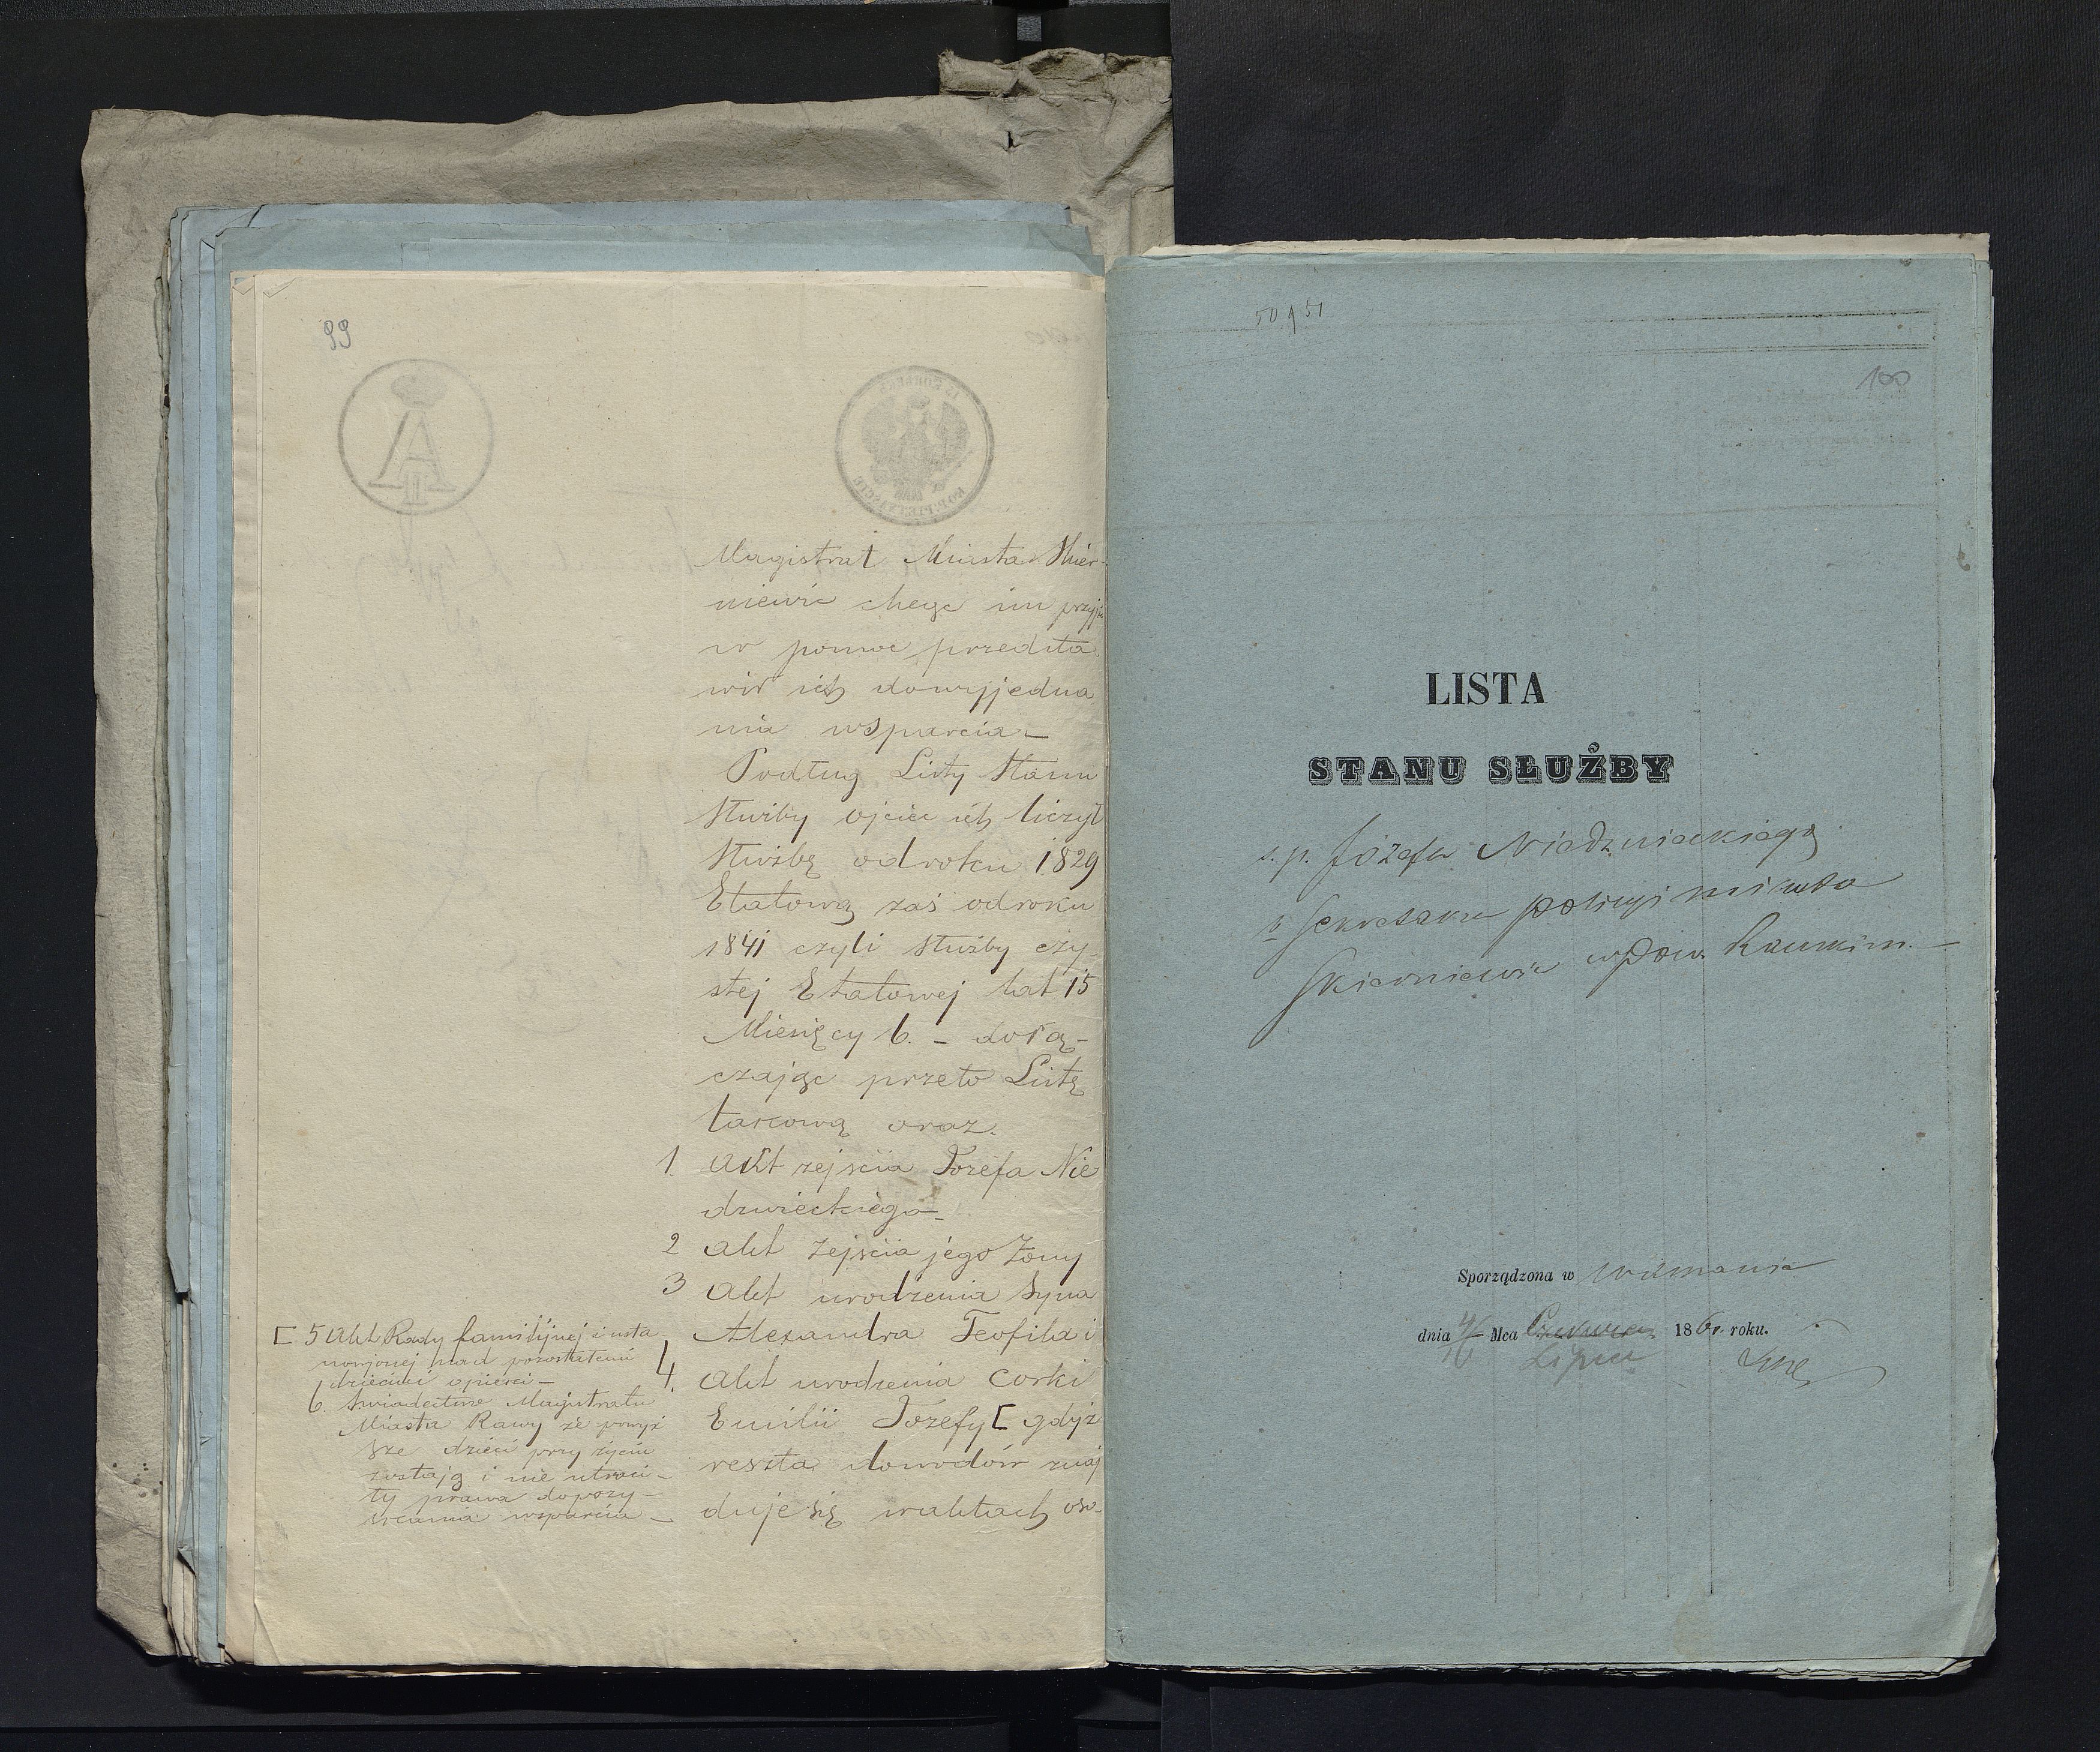 99
Magistrat Miasta Skier-
niewic chcąc im przyjść
w pomoc przedsta
wił ich do wyjedna
nia wsparcia —
Podług Listy Stanu
Służby ojciec ich liczył
Służbę od roku 1829
Etatową zaś od roku
1841 czyli służby czy
stej Etatowej lat 15
Miesięcy 6. – dołą-
czając przeto Listę
oraz
1. Akt zejścia Jozefa Nie
dzwieckiego
2 Akt zejścia jego żony
3 Akt urodzenia Syna
Alexandra Teofila i
4. Akt urodzenia corki
Emilii Jozefy [ gdyż
reszta dowodów znaj
duje się w aktach oso-
[ 5 Akt Rady familijnej i usta
nowionej nad pozostałemi
dziećmi opieki —
6. Świadectwo Magistratu
Miasta Rawy że powyż
sze dzieci przy życiu
zostają i nie utraci-
ły prawa do pozy-
wsparcia —
50 51
100
LISTA
STANU SŁUŻBY
s. p. Józefa Niedzwieckiego
b Sekretarza policyi miasta
Skierniewic w Pow. Rawskim. —
Sporządzona w
dnia 4/16 Mca Czerwca 186 roku.
Lipca